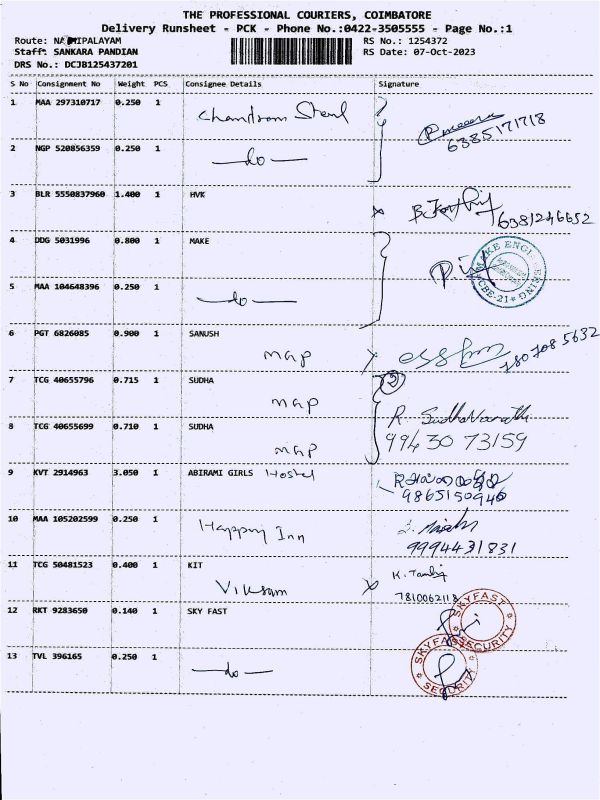 THE PROFESSIONAL COURIERS, COIMBATORE
Delivery Runsheet - PCK - Phone No.:0422-3505555 - Page No.:1
Route: RS No.: 1254372
Staff: SANKARA PANDIAN RS Date: 07-Oct-2023
DRS No.: DCJB125437201
S No Consignment No Weight PCS Consignee Details Signature
1 MAA 297310717 0.250 1
6385171718
2 NGP 520856359 0.250 1 do
3 BLR 5550837960 1.400 1 HVK
6381246652
4 DDG 5031996 0.800 1 MAKE
MAKE ENGINEERING CBE-21
5 MAA 104648396 0.250 1 do
6 PGT 6826085 0.900 1 SANUSH
map
7 TCG 40655796 0.715 1 SUDHA
map
2
R. Sudha
99430 73159
8 TCG 40655699 0.710 1 SUDHA
map
9 KVT 2914963 3.050 1 ABIRAMI GIRLS Hostel
9865150946
10 MAA 105202599 0.250 1
Happy Inn
9994431831
11 TCG 50481523 0.400 1 KIT
Vikram
7810062118
12 RKT 9283650 0.140 1 SKY FAST
SKYFAST SECURITY
13 TVL 396165 0.250 1 do
SKYFAST SECURITY